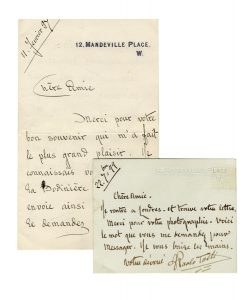 12, MANDEVILLE PLACE,
W.
11 février 9
Chère Amie
Merci pour votre
bon souvenir qui m'a fait
le plus grand plaisir. Je
connaissais
la Bodinière
envoie ainsi
le demandez
MANDEVILLE PLACE
Chère Amie.
Je rentre a Londres. et trouve votre lettre.
Merci pour votre photographie. Voici
le mot que vous me demandez pour
Messager. Je vous baise les mains.
Votre dévoué